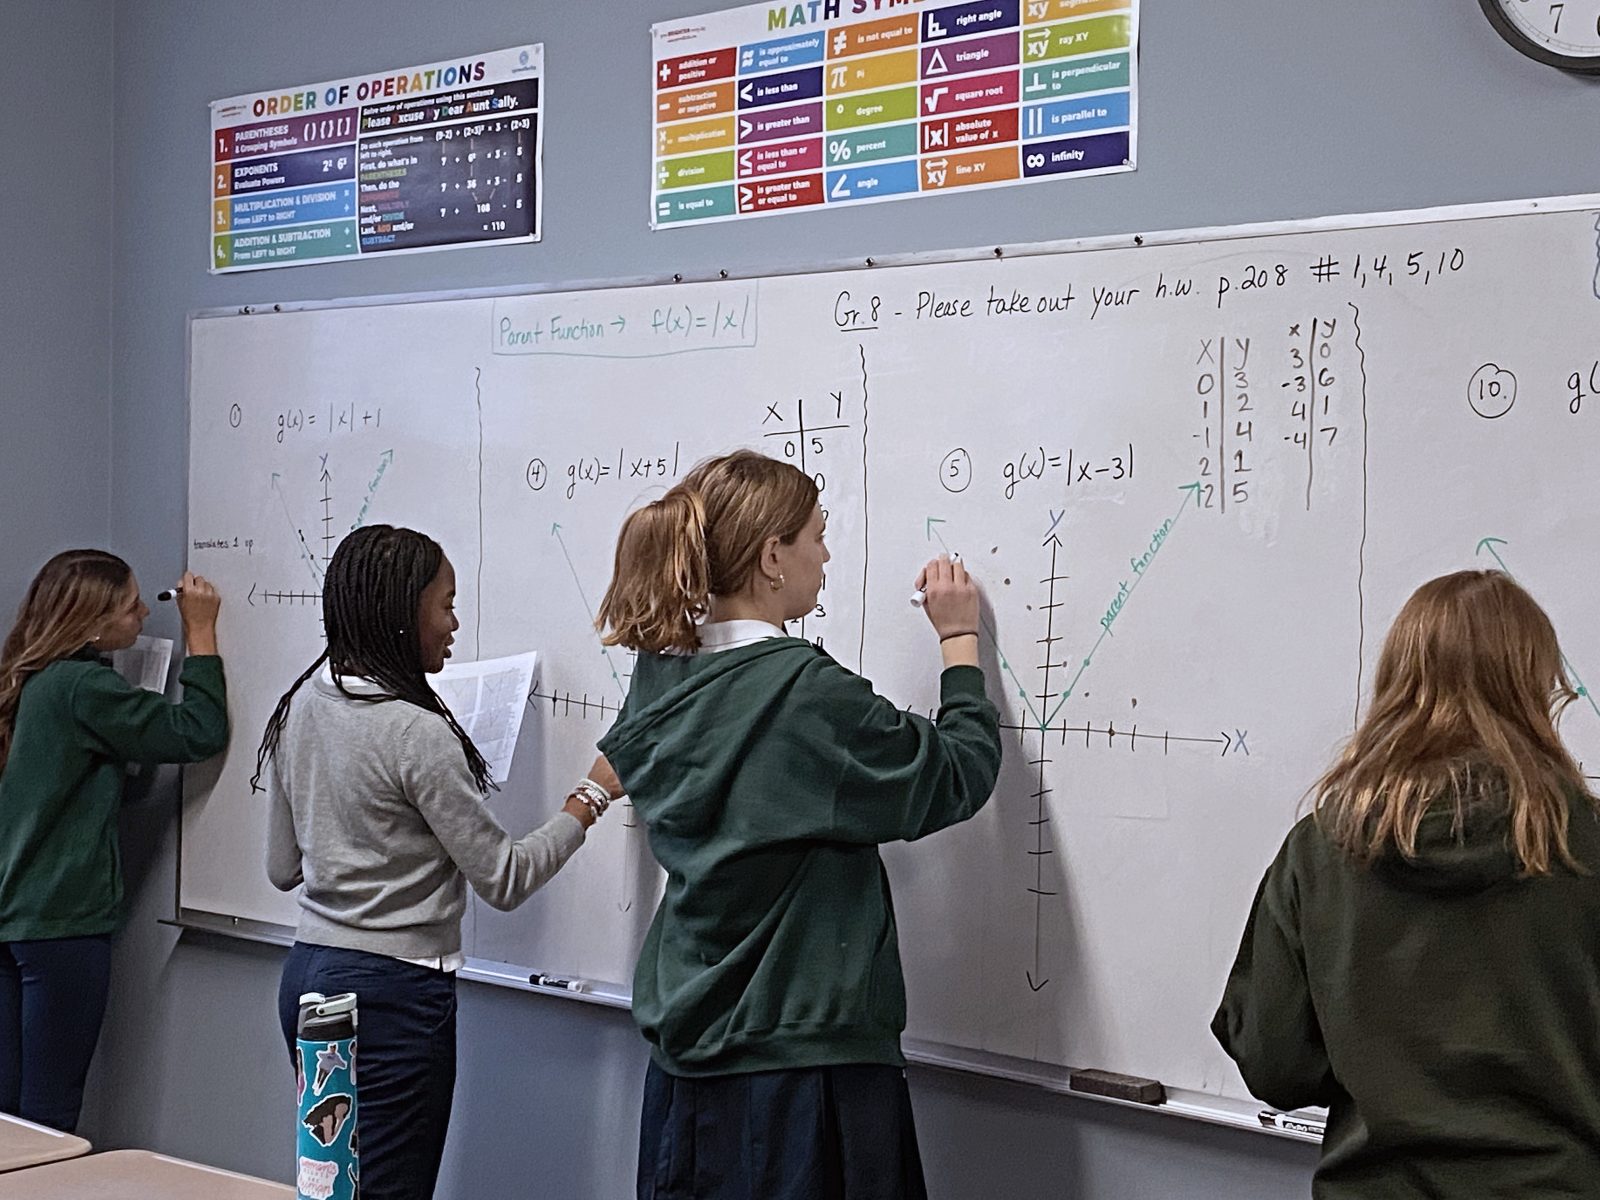 ORDER OF OPERATIONS
1. PARENTHESES ( ) { } [ ]
& Grouping Symbols
2. EXPONENTS 2² 6³
Evaluate Powers
3. MULTIPLICATION & DIVISION
From LEFT to RIGHT
4. ADDITION & SUBTRACTION
From LEFT to RIGHT
Solve order of operations using this sentence
Please Excuse My Dear Aunt Sally.
Do each operation from
left to right.
First, do what's in
PARENTHESES
Then, do the
Next, MULTIPLY
and/or DIVIDE
Last, ADD and/or
SUBTRACT
7 + 6² × 3 - 5
7 + 36 × 3 - 5
7 + 108 - 5
= 110
MATH
+ addition or
positive
- subtraction
or negative
× multiplication
÷ division
= is equal to
≈ is approximately
equal to
< is less than
> is greater than
≤ is less than or
equal to
≥ is greater than
or equal to
≠ is not equal to
π Pi
° degree
% percent
∠ angle
right angle
△ triangle
√ square root
|x| absolute
value of x
xy line XY
xy
xy ray XY
⊥ is perpendicular
to
|| is parallel to
∞ infinity
7
Parent Function → f(x)=|x|
Gr.8 - Please take out your h.w. p.208 # 1,4,5,10
① g(x) = |x|+1
Y
translates 1 up
④ g(x)=|x+5|
X Y
0 5
⑤ g(x)=|x-3|
X Y
0 3
1 2
-1 4
2 1
-2 5
x y
3 0
-3 6
4 1
-4 7
Y
parent function
X
⑩. g(